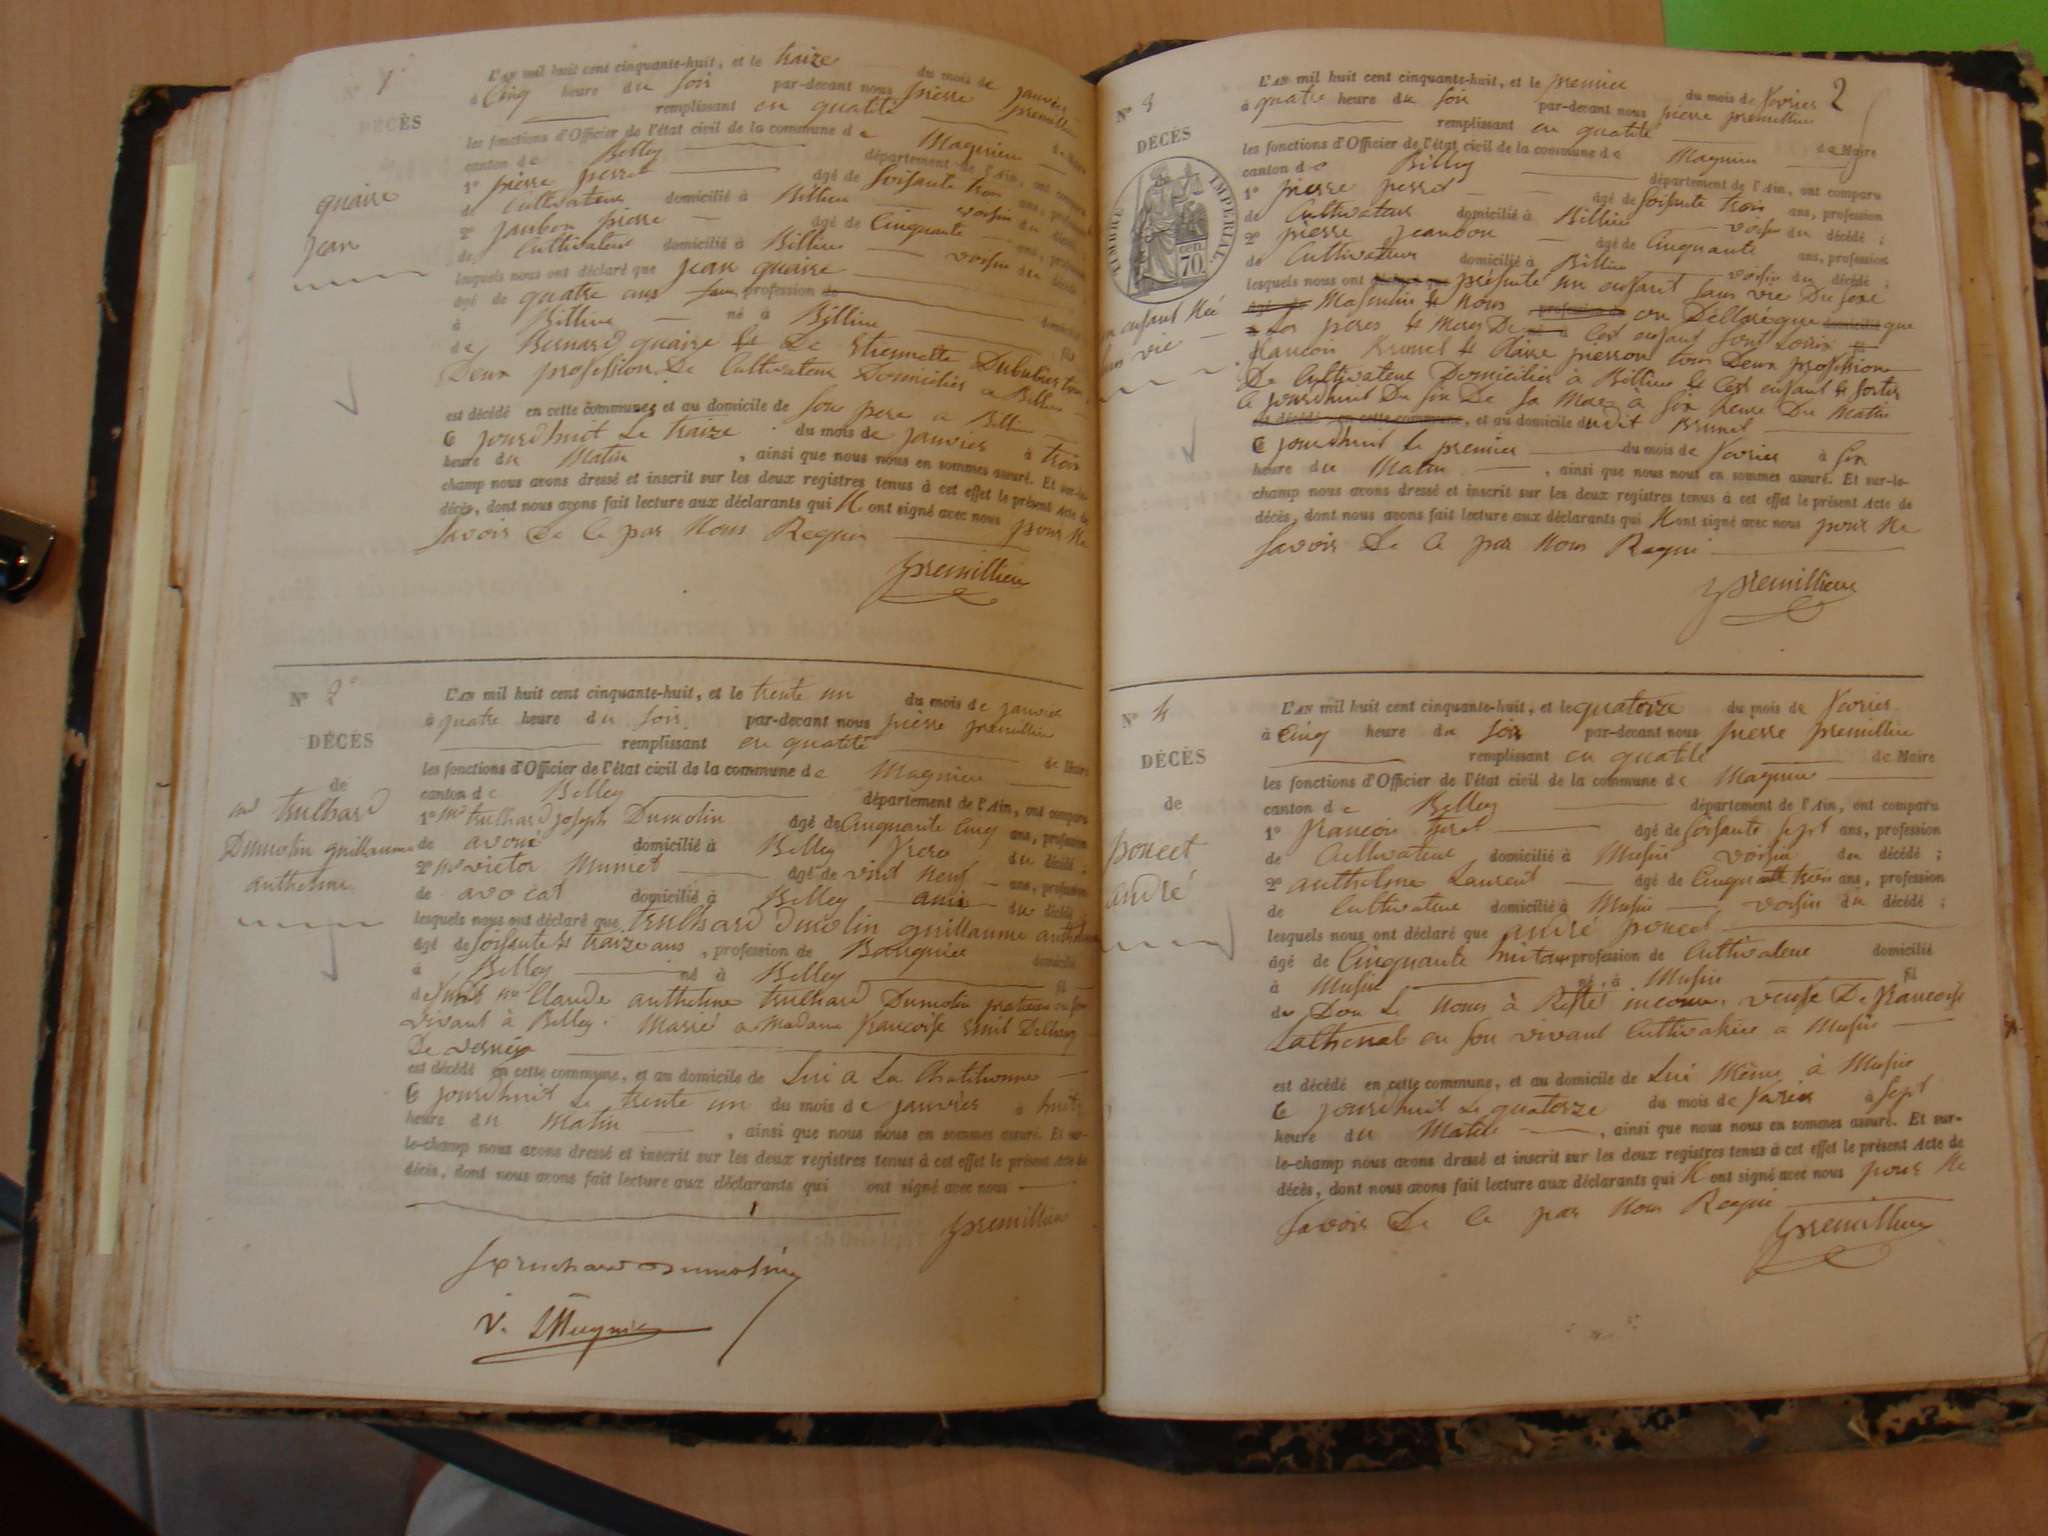 N° 1
DÉCÈS
quaire
Jean
L'AN mil huit cent cinquante-huit, et le traize du mois de janvier
à Cinq heure du soir par-devant nous pierre premillieu
remplissant en qualité de Maire
les fonctions d'Officier de l'état civil de la commune de Magnieu
canton de Belley département de l'Ain, ont comparu
1° pierre perret âgé de soisante trois ans, profession
de Cultivateur domicilié à Billieu voisin du décédé ;
2° jaubon pierre âgé de Cinquante ans, profession
de Cultivateur domicilié à Billieu voisin du décédé ;
lesquels nous ont déclaré que Jean quaire
âgé de quatre ans sans profession de domicilié
à Billieu né à Billieu fil
de Bernard quaire et De Etiennette Dububier tous
Deux profession De Cultivateur Domiciliés a Billieu
est décédé en cette commune, et au domicile de son pere a Billieu
Ce jourd'huit Le traize du mois de janvier à trois
heure du Matin, ainsi que nous nous en sommes assuré. Et sur-le-
champ nous avons dressé et inscrit sur les deux registres tenus à cet effet le présent Acte de
décès, dont nous avons fait lecture aux déclarants qui N'ont signé avec nous pour Ne
savoir De Ce par Nous Requis
premillieu
N° 2°
DÉCÈS
de
mr trulhard
Dumolin guillaume
anthelme
L'AN mil huit cent cinquante-huit, et le trente un du mois de janvier
à quatre heure du soir par-devant nous pierre premillieu
remplissant en qualité de Maire
les fonctions d'Officier de l'état civil de la commune de Magnieu
canton de Belley département de l'Ain, ont comparu
1° mr trulhard joseph Dumolin âgé de Cinquante Cinq ans, profession
de avoué domicilié à Belley frere du décédé ;
2° mr victor Munier âgé de vint neuf ans, profession
de avocat domicilié à Belley ami du décédé ;
lesquels nous ont déclaré que trulhard dumolin guillaume anthelme
âgé de soisante et traize ans, profession de Banquier domicilié
à Belley né à Belley fil
de feu mr Claude anthelme trulhard Dumolin praticien en son
vivant à Belley. Marié a Madame francoise
De
est décédé en cette commune, et au domicile de Lui a La Chatelonne
Ce jourd'huit Le trente un du mois de janvier à huit
heure du Matin, ainsi que nous nous en sommes assuré. Et sur-
le-champ nous avons dressé et inscrit sur les deux registres tenus à cet effet le présent Acte de
décès, dont nous avons fait lecture aux déclarants qui ont signé avec nous
premillieu
trulhard Dumolin
V. Mugnier
2
N° 3
DÉCÈS
TIMBRE IMPERIAL
70 cen.
un enfant Né
sans vie
L'AN mil huit cent cinquante-huit, et le premier du mois de fevrier
à quatre heure du soir par-devant nous pierre premillieu
remplissant en qualité de Maire
les fonctions d'Officier de l'état civil de la commune de Magnieu
canton de Belley département de l'Ain, ont comparu
1° pierre perret âgé de soisante trois ans, profession
de Cultivateur domicilié à Billieu voisin du décédé ;
2° pierre jeanbon âgé de Cinquante ans, profession
de Cultivateur domicilié à Billieu voisin du décédé ;
lesquels nous ont déclaré que présenté un enfant sans vie Du sexe
âgé de Masculin et Nous profession de on Déclaré que domicilié que
Les peres et Meres De Cet enfant sont
francois Brunet et Claire pierron tous Deux profession
De Cultivateur Domiciliés à Billieu et Cet enfant et sortis
Ce jourd'huit Du sin De sa Mere a six heure Du Matin
est décédé en cette commune, et au domicile dudit Brunet
Ce jourd'huit Le premier du mois de fevrier à six
heure du Matin, ainsi que nous nous en sommes assuré. Et sur-le-
champ nous avons dressé et inscrit sur les deux registres tenus à cet effet le présent Acte de
décès, dont nous avons fait lecture aux déclarants qui N'ont signé avec nous pour Ne
savoir De Ce par Nous Requi
premillieu
N° 4
DÉCÈS
de
poncet
andré
L'AN mil huit cent cinquante-huit, et le quatorze du mois de fevrier
à Cinq heure du soir par-devant nous pierre premillieu
remplissant en qualité de Maire
les fonctions d'Officier de l'état civil de la commune de Magnieu
canton de Belley département de l'Ain, ont comparu
1° francois âgé de soisante sept ans, profession
de Cultivateur domicilié à Musin voisin du décédé ;
2° anthelme Laurent âgé de Cinquante trois ans, profession
de Cultivateur domicilié à Musin voisin du décédé ;
lesquels nous ont déclaré que andré poncet
âgé de Cinquante huit ans profession de Cultivateur domicilié
à Musin né à Musin fil
de Don Le Noms à Resté inconnu. veuf De francoise
Lathenal en son vivant Cultivatrice a Musin
est décédé en cette commune, et au domicile de Lui Même à Musin
Ce jourd'huit Le quatorze du mois de fevrier à sept
heure du Matin, ainsi que nous nous en sommes assuré. Et sur-
le-champ nous avons dressé et inscrit sur les deux registres tenus à cet effet le présent Acte de
décès, dont nous avons fait lecture aux déclarants qui N'ont signé avec nous pour Ne
savoir De Ce par Nous Requis
premillieu